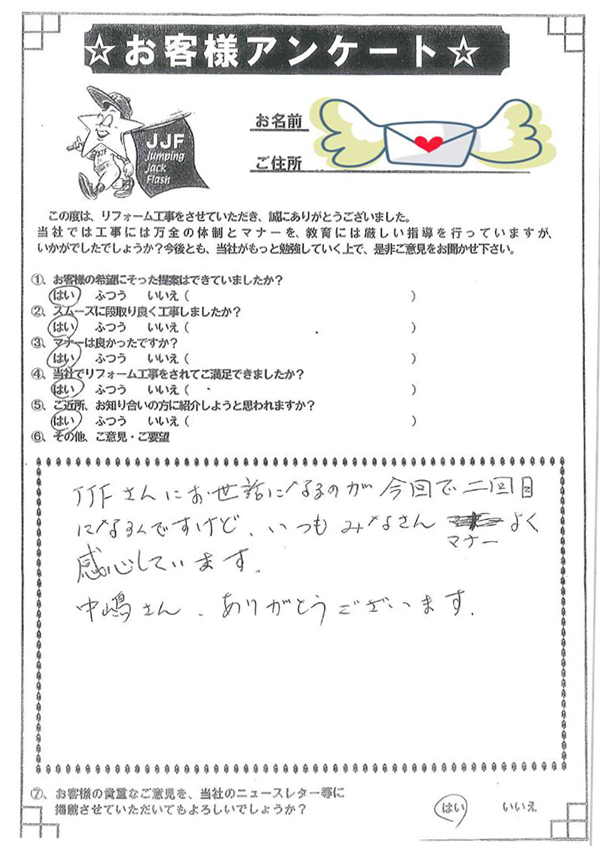 ☆お客様アンケート☆
JJF
Jumping
Jack
Flash
お名前
ご住所
この度は、リフォーム工事をさせていただき、誠にありがとうございました。
当社では工事には万全の体制とマナーを、教育には厳しい指導を行っていますが、
いかがでしたでしょうか？今後とも、当社がもっと勉強していく上で、是非ご意見をお聞かせ下さい。
①、お客様の希望にそった提案はできていましたか？
はい ふつう いいえ（ ）
②、スムーズに段取り良く工事しましたか？
はい ふつう いいえ（ ）
③、マナーは良かったですか？
はい ふつう いいえ（ ）
④、当社でリフォーム工事をされてご満足できましたか？
はい ふつう いいえ（ ）
⑤、ご近所、お知り合いの方に紹介しようと思われますか？
はい ふつう いいえ（ ）
⑥、その他、ご意見・ご要望
JJFさんにお世話になるのが今回で二回目
になるんですけど、いつもみなさん マナー よく
感心しています。
中嶋さん、ありがとうございます。
⑦、お客様の貴重なご意見を、当社のニュースレター等に
掲載させていただいてもよろしいでしょうか？
はい いいえ